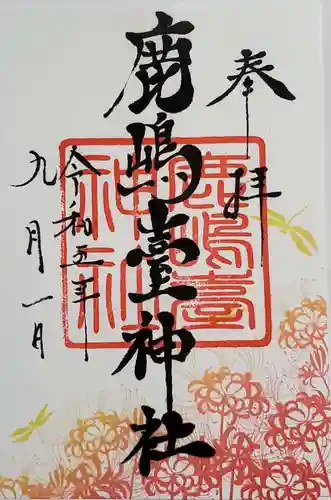 奉拝
鹿嶋臺神社
鹿嶋臺神社
令和五年
九月一日